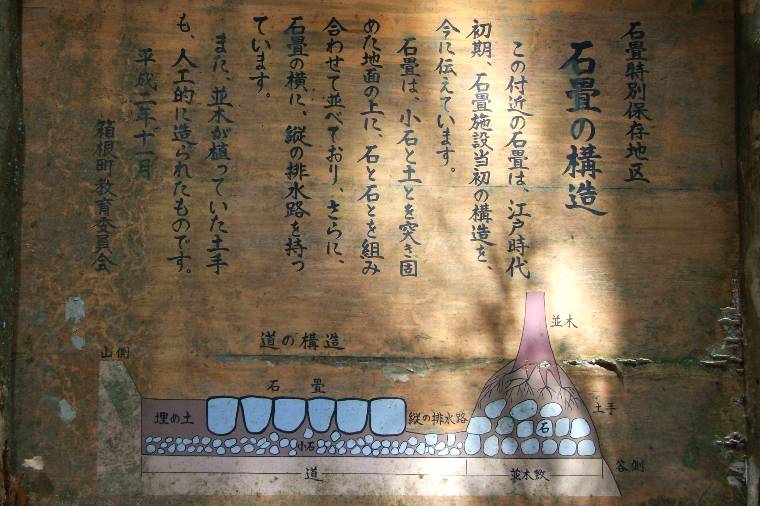 石畳特別保存地区
石畳の構造
この付近の石畳は、江戸時代
初期、石畳施設当初の構造を、
今に伝えています。
石畳は、小石と土とを突き固
めた地面の上に、石と石とを組み
合わせて並べており、さらに、
石畳の横に、縦の排水路を持っ
ています。
また、並木が植っていた土手
も、人工的に造られたものです。
平成二年十一月
箱根町教育委員会
道の構造
山側
石畳
並木
埋め土
縦の排水路
土手
小石
石
道
並木敷
谷側